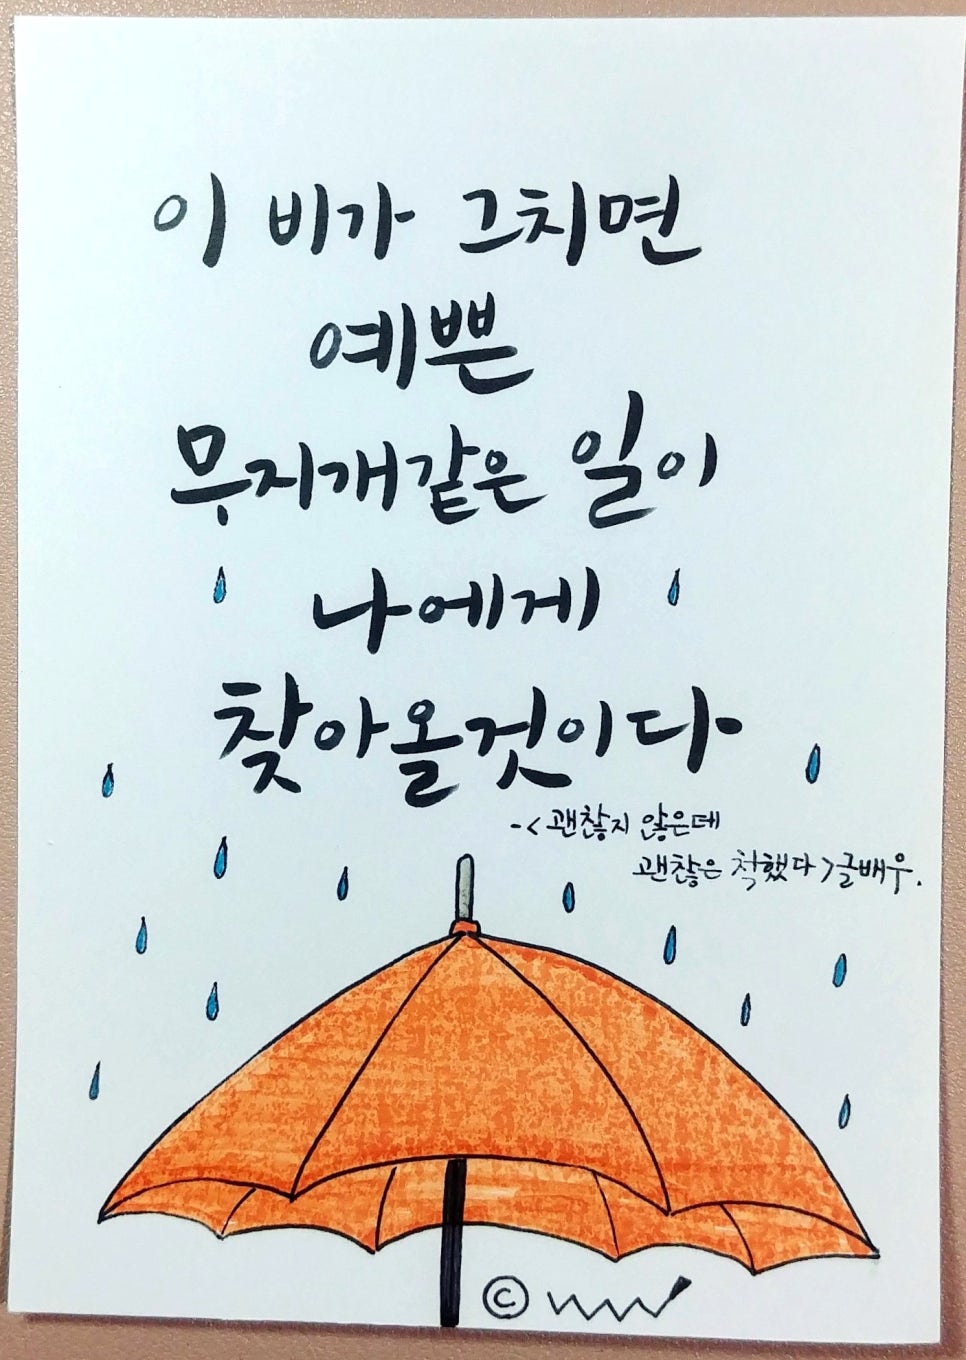 이 비가 그치면
예쁜
무지개같은 일이
나에게
찾아올것이다
-<괜찮지 않은데
괜찮은 척했다>글배우.